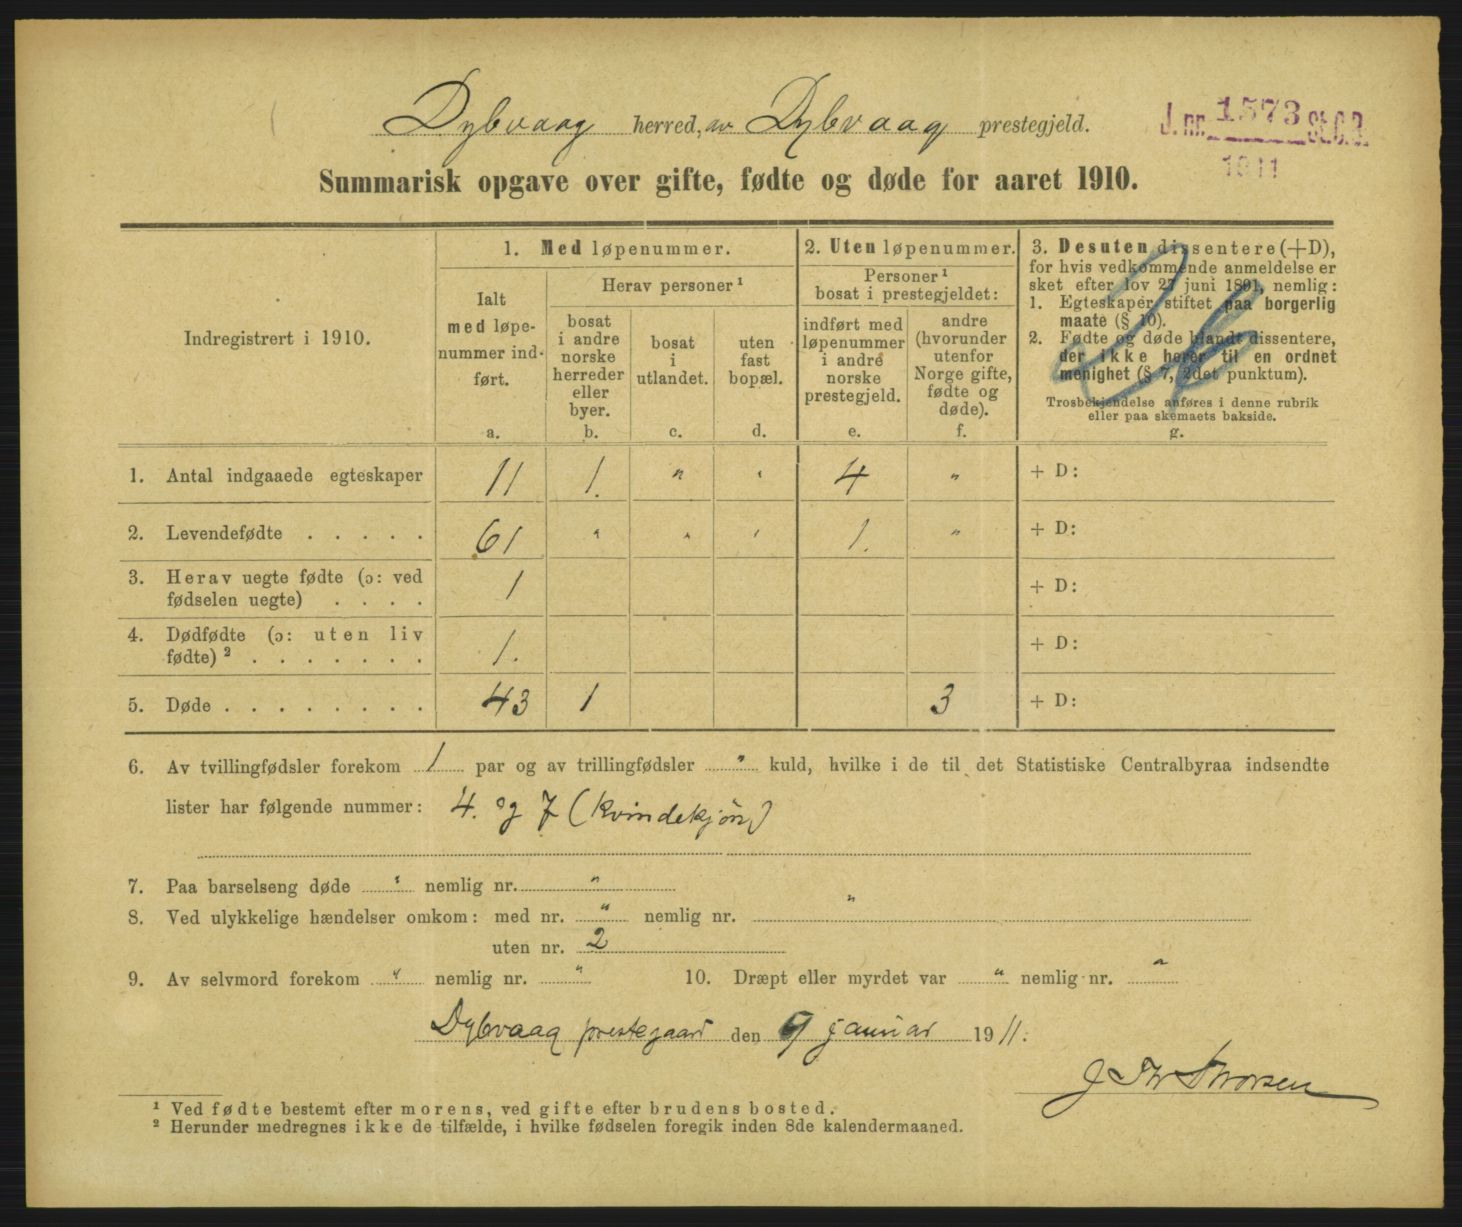 Dybvaag herred, av Dybvaag prestegjeld.
J. nr. 1573 St.C.B.
1911
Summarisk opgave over gifte, fødte og døde for aaret 1910.
Indregistrert i 1910.
1. Med løpenummer.
Ialt
med løpe-
nummer ind-
ført.
a.
Herav personer ¹
bosat
i andre
norske
herreder
eller
byer.
b.
bosat
i
utlandet.
c.
uten
fast
bopæl.
d.
2. Uten løpenummer.
Personer ¹
bosat i prestegjeldet:
indført med
løpenummer
i andre
norske
prestegjeld.
e.
andre
(hvorunder
utenfor
Norge gifte,
fødte og
døde).
f.
3. Desuten dissentere (+D),
for hvis vedkommende anmeldelse er
sket efter lov 27 juni 1891, nemlig:
1. Egteskaper stiftet paa borgerlig
maate (§ 10).
2. Fødte og døde blandt dissentere,
der ikke hører til en ordnet
menighet (§ 7, 2det punktum).
Trosbekjendelse anføres i denne rubrik
eller paa skemaets bakside.
g.
1. Antal indgaaede egteskaper 11 1. " " 4 " + D:
2. Levendefødte . . . . . 61 " " " 1. " + D:
3. Herav uegte fødte (ɔ: ved
fødselen uegte) . . . . 1 + D:
4. Dødfødte (ɔ: uten liv
fødte) ² . . . . . . . 1. + D:
5. Døde . . . . . . . . 43 1 3 + D:
6. Av tvillingfødsler forekom 1 par og av trillingfødsler " kuld, hvilke i de til det Statistiske Centralbyraa indsendte
lister har følgende nummer: 4. og 7 (kvindekjøn)
7. Paa barselseng døde " nemlig nr. "
8. Ved ulykkelige hændelser omkom: med nr. " nemlig nr. "
uten nr. 2
9. Av selvmord forekom " nemlig nr. " 10. Dræpt eller myrdet var " nemlig nr. "
Dybvaag prestegaard den 9 januar 1911.
¹ Ved fødte bestemt efter morens, ved gifte efter brudens bosted.
² Herunder medregnes ikke de tilfælde, i hvilke fødselen foregik inden 8de kalendermaaned.